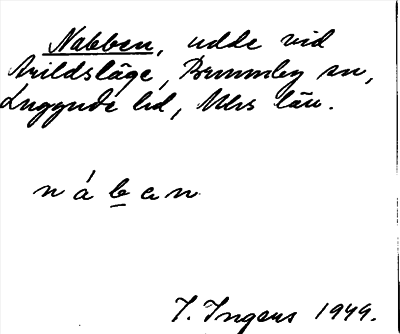 Nabben, udde vid
Arildsläge, Brunnby sn,
Luggude hd, Mlhs län.
nába̲n
I. Ingers 1949.